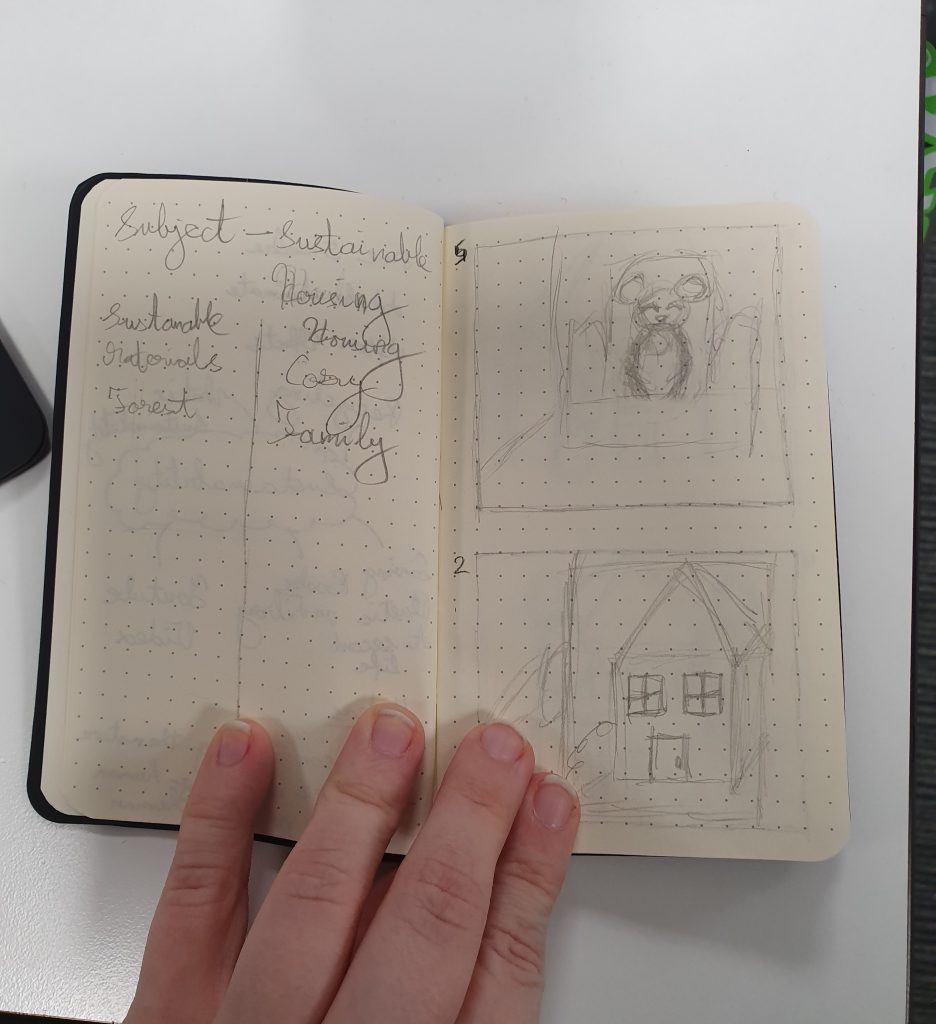 Subject – Sustainable
Housing
Sustanable
Materials
Forest
Homing
Cosy
Family
2